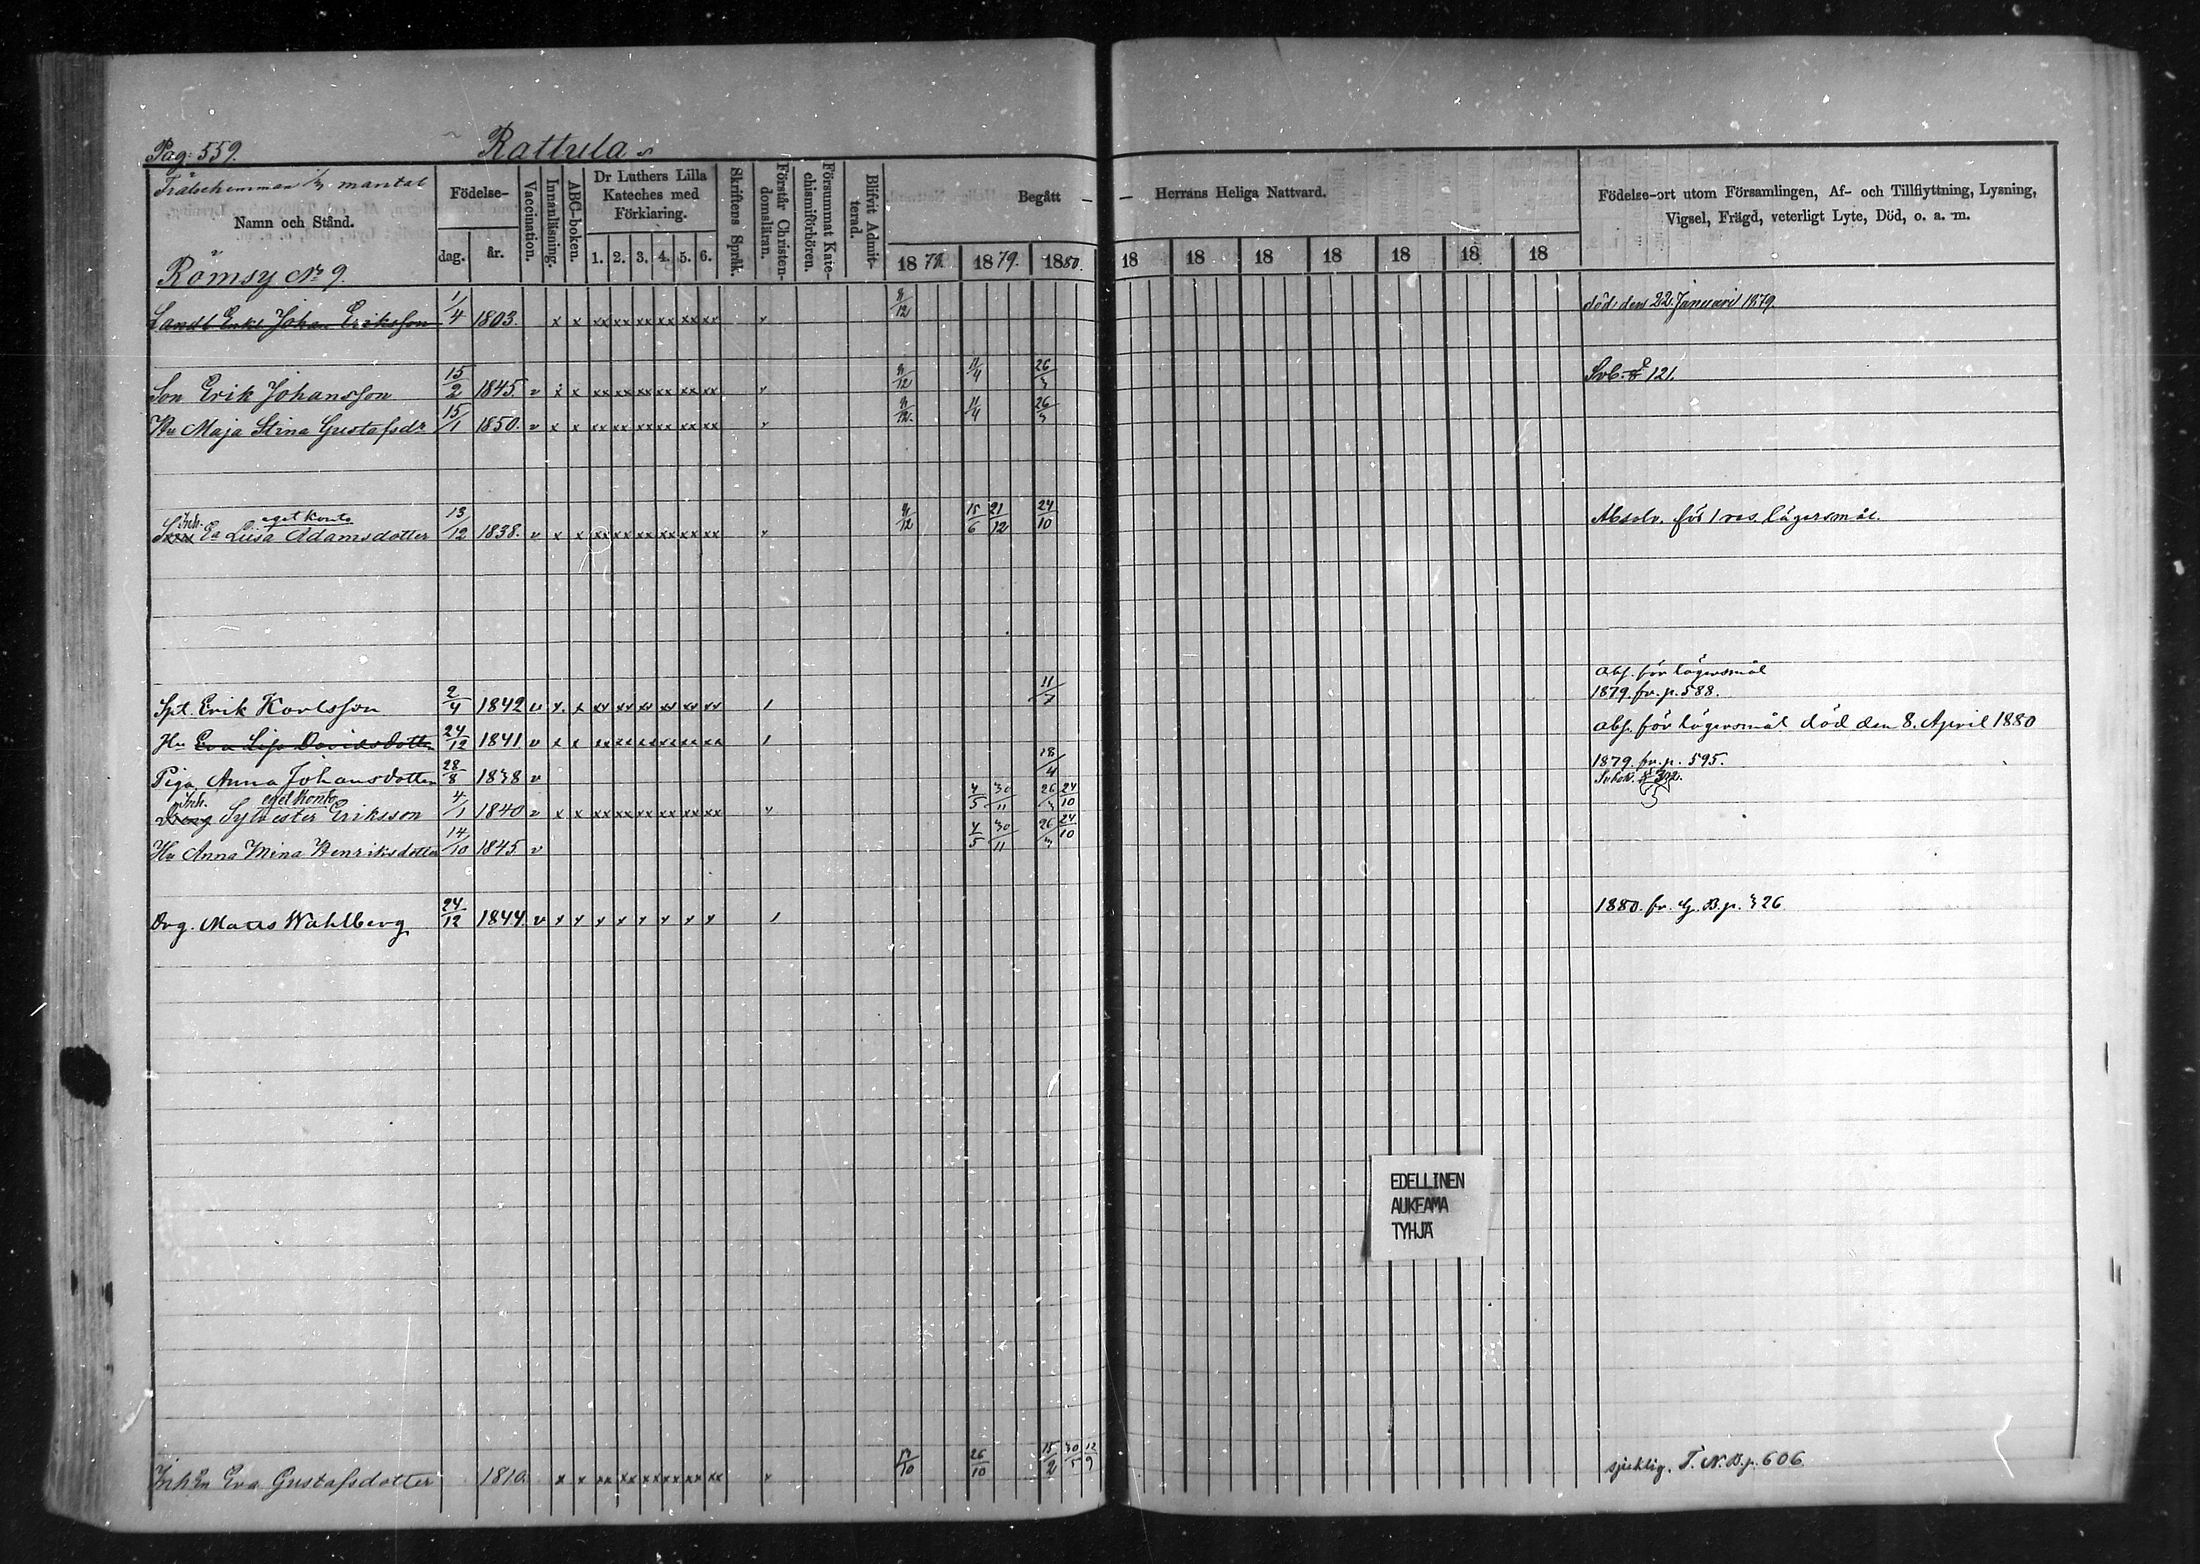 Pag: 559. Rattula
Frälsehemman mantal
Namn och Stånd.
Födelse-
dag. år.
Vaccination.
Innanläsning.
ABC-boken.
Dr Luthers Lilla
Kateches med
Förklaring.
1. 2. 3. 4. 5. 6.
Skriftens Språk.
Förstår Christen-
domsläran.
Försummat Kate-
chismiförhören.
Blifvit Admit-
terad.
Begått — — Herrans Heliga Nattvard.
1878. 1879. 1880. 18 18 18 18 18 18 18
Födelse-ort utom Församlingen, Af- och Tillflyttning, Lysning,
Vigsel, Frägd, veterligt Lyte, Död, o. a. m.
Römsy No 9.
Landb Enkl Johan Eriksson 1/4 1803. x x xx xx xx xx xx xx 8/12 död den 22 Januari 1879
Son Erik Johansson 15/2 1845. v x x xx xx xx xx xx xx 8/12 11/4 26/3 121.
Hu Maja Stina Gustafsdr 15/1 1850. v x x xx xx xx xx xx xx 8/12. 11/4 26/3
Inh. eget konto
Ea Lisa Adamsdotter 13/12 1838. v x x xx xx xx xx xx xx 8/12 15/6 21/12 24/10 Absolv. för 1 res lägersmål.
abs. för lägersmål
Spt. Erik Karlsson 2/4 1842 v x x xx xx xx xx xx xx 11/7 1879 fr. p. 588.
Hu Eva Lisa Davidsdotter 24/12 1841 v x x xx xx xx xx xx xx abs. för lägersmål död den 8. April 1880
Piga Anna Johansdotter 28/8 1838 v 18/4 1879 fr. p. 595.
Inh. eget konto
Dreng Sylvester Eriksson 4/1 1840 v x x xx xx xx xx xx xx 4/5 30/11 26/3 24/10
Hu Anna Mina Henriksdotter 14/10 1845 v 4/5 30/11 26/3 24/10
Drg. Matts Wahlberg 24/12 1844. v x x x x x x x x 1880. fr. G. B. p. 326
EDELLINEN
AUKEAMA
TYHJÄ
Inh En Eva Gustafsdotter 1810. x x xx xx xx xx xx xx 26/10 15/2 30/5 12/9 sjuklig. T. N. B. p. 606